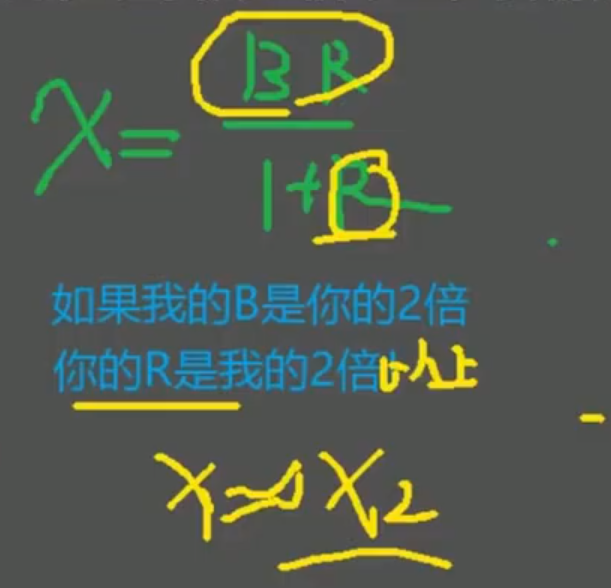 X = BR
1+R
如果我的B是你的2倍
你的R是我的2倍以上
X X2